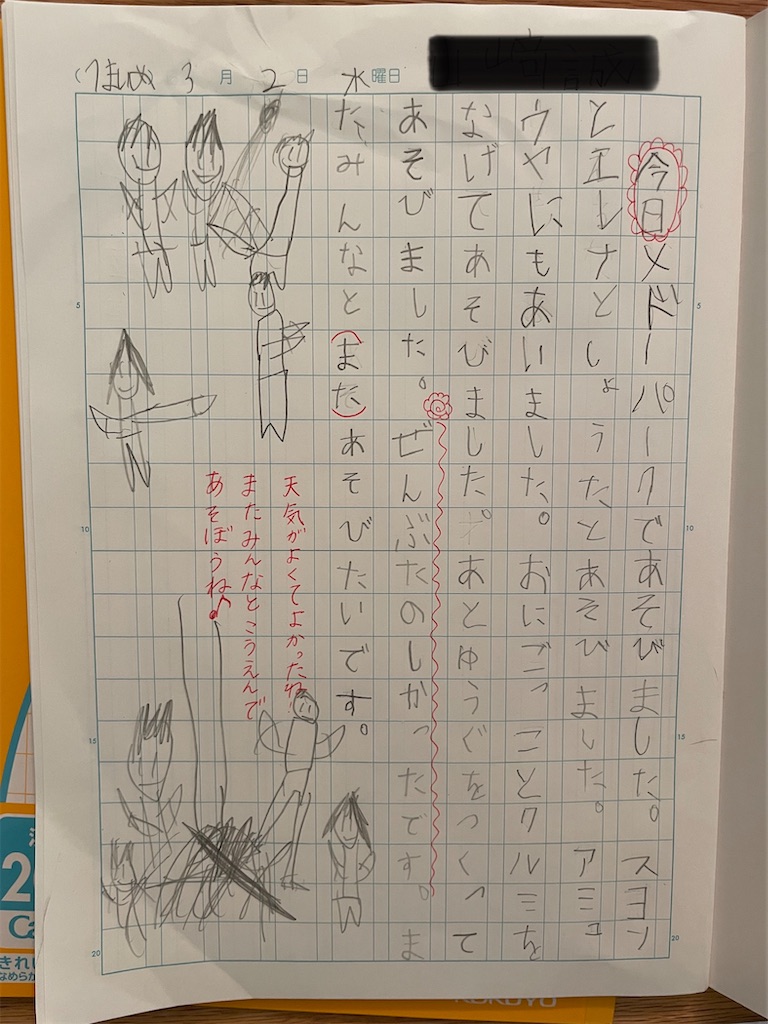 3月2日 水曜日
今日メドーパークであそびました。スヨン
とエレナとしょうたとあそびました。アミュ
ウヤにもあいました。おにごっことクルミを
なげてあそびました。あとゆうぐをつくって
あそびました。ぜんぶたのしかったです。ま
たみんなと(また)あそびたいです。
天気がよくてよかったね!
またみんなとこうえんで
あそぼうね♪
5
10
15
20
5
10
15
20
KOKUYO